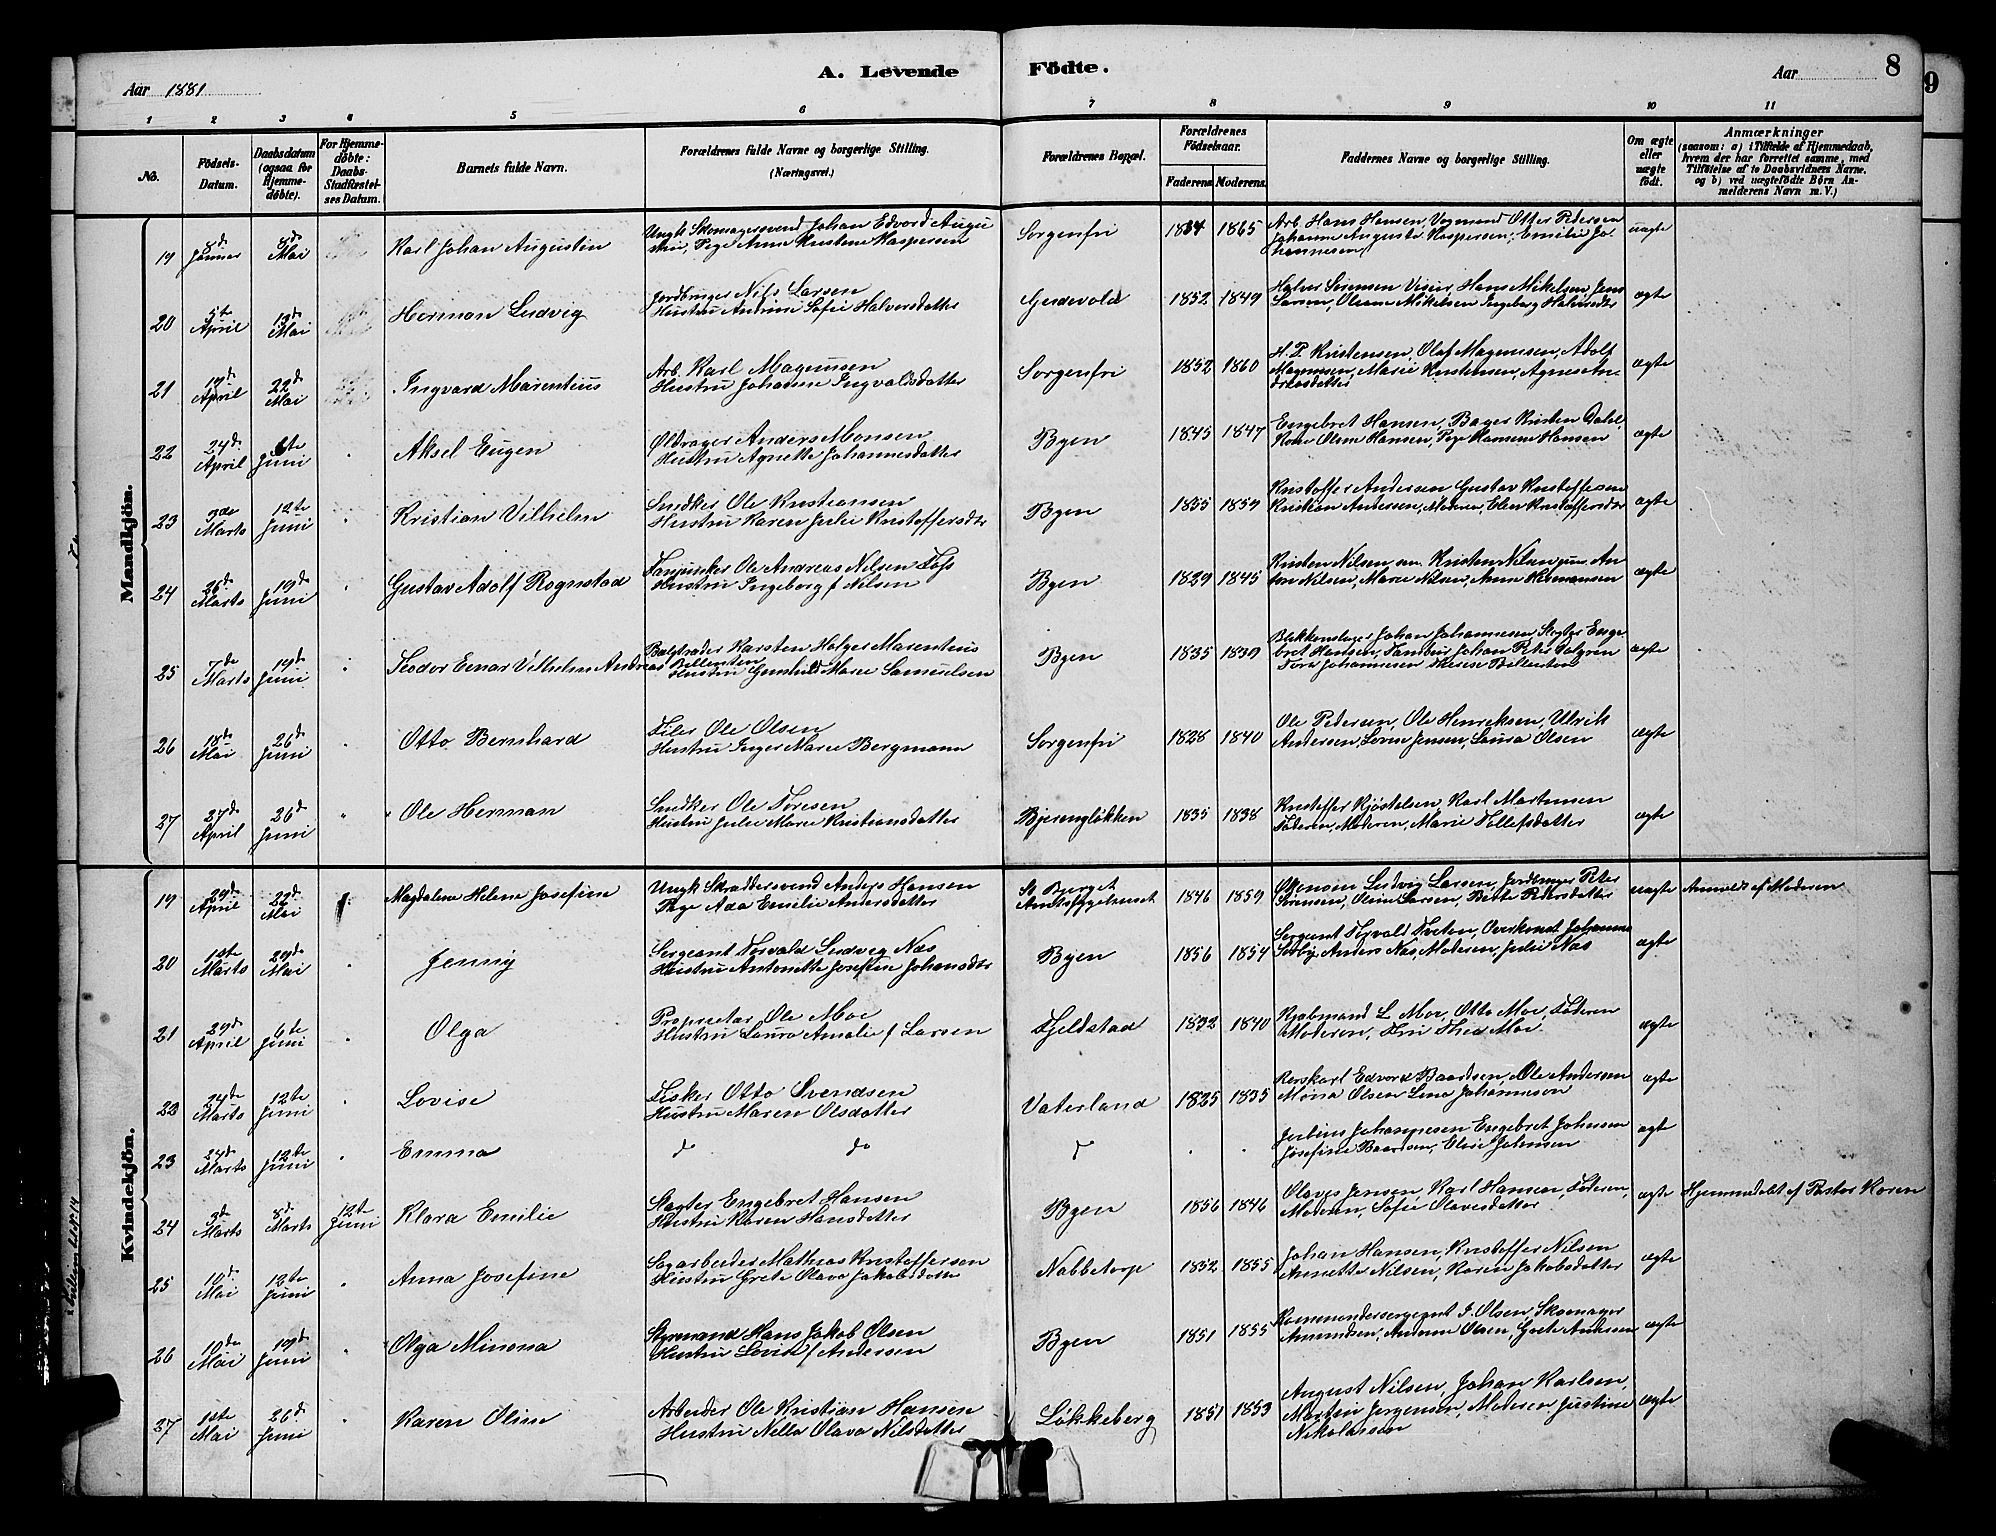 A. Levende Födte.
Aar 1881
Aar
8
9
1 2 3 4 5 6 7 8 9 10 11
No.
Födsels-Datum.
Daabsdatum (ogsaa for Hjemme-döbte).
For Hjemme-döbte: Daabs-Stadfæstel-ses Datum.
Barnets fulde Navn.
Forældrenes fulde Navne og borgerlige Stilling. (Næringsvei.)
Forældrenes Bopæl.
Forældrenes Födselsaar.
Faderens. Moderens.
Faddernes Navne og borgerlige Stilling.
Om ægte eller uægte födt.
Anmærkninger
(saasom: a) i Tilfælde af Hjemmedaab, hvem der har forrettet samme, med Tilföielse af to Daabsvidners Navne, og b) ved uægtefödte Börn An-melderens Navn m. V.)
Mandkjön.
19 8de Januar 8de Mai Karl Johan Augustin
Ungk Skomagersvend Johan Edvord Augu
stin, Pige Anne Kristine Kaspersen
Sorgenfri 1865
Arb. Hans Hansen, Vognmand Otter Pedersen
Johanne Auguste Kaspersen, Emilie Jo-
hannesen
uægte
20 5te April 13de Mai Herman Ludvig
Jordbruger Nils Larsen
Hustru Andrine Sofie Halversdatter
Gudevold 1852 1849
Halvor Sörensen Visiur, Hans Mikelsen, Jens
Larsen, Oleane Mikelsen Ingeborg Halvorsdtr
ægte
21 19de April 22de Mai Ingvard Marentius
Arb. Karl Magnusen
Hustru Johanne Ingvaldsdatter
Sorgenfri 1852 1860
H. P. Kristensen, Olaf Magnusen, Adolf
Magnusen, Marie Kristensen, Agnes An-
dreasdatter
ægte
22 24de April 6te Juni Aksel Eugen
Öldrager Anders Monsen
Hustru Agnette Johannesdatter
Byen 1845 1847
Engebret Hansen, Bager Kristen Dahl,
Kone Oline Hansen, Pige Hansine Hansen
ægte
23 Marts 12te Juni Kristian Vilhelm
Snidker Ole Kristiansen
Hustru Karen Julie Kristoffersdtr
Byen 1855 1859
Kristoffer Andersen Gustav Kristoffersen
Kristian Andersen, Moderen, Elen Kristoffersdtr
ægte
24 26de Marts 19de Juni Gustav Adolf Rognstad
Ole Andreas Nilsen Foss
Hustru Ingeborg f Nilsen
Byen 1829 1845
Kristen Nilsen sen. Kristen Nilsen jun. An
ton Nilsen, Marie Nilsen, Anne Hermansen
ægte
25 7de Marts 19de Juni Teodor Einar Vilhelm Andreas
Bælgtræder Karsten Holger Marentius
Bellentin
Hustru Gunhild Marie Samuelsen
Byen 1835 1839
Blikkenslager Johan Johannesen Slagter Enge
bret Hansen, Tambur Johan Peter Dalgren
Tora Johannesen Therese Bellentin
ægte
26 18de Mai 26de Juni Otto Bernhard
Filer Ole Olsen
Hustru Inger Marie Bergmann
Sorgenfri 1828 1840
Ole Pedersen, Ole Henriksen, Ulrik
Andersen, Lovise Jensen, Laura Olsen
ægte
27 27de April 26de Juni Ole Herman
Snidker Ole Toresen
Hustru Julie Marie Kristiansdatter
Bjerengløkken 1835 1838
Kristoffer Kjöstelsen, Karl Martinsen
Faderen, Moderen, Marie Tollefsdatter
ægte
Kvindekjön.
19 29de April 22de Mai Magdalene Helene Josefine
Ungk Skræddersvend Anders Hansen
Pige Ada Emilie Andersdatter
St Bjerget
Amtssygehuset 1846 1859
Ludvig Larsen, Jordbruger Peter
Sörensen, Oline Larsen, Bette Pedersdatter
uægte Anmeldt af Moderen
20 18te Marts 29de Mai Jenny
Sergeant Torvald Ludvig Næs
Hustru Antonette Josefine Johansdtr
Byen 1856 1854
Sergeant Torvald Tveten, Overkonst. Johannes
Anders Næs, Moderen, Julie Næs
ægte
21 29de April 6te Juni Olga
Proprietær Ole Moe
Hustru Laura Amalie f Larsen
Fjeldstad 1832 1840
Kjøbmand L. Moe, Otto Moe, Faderen
Moderen, Fru Thea Moe
ægte
22 24de Marts 12te Juni Lovise
Fisker Otto Svendsen
Hustru Maren Olsdatter
Vaterland 1825 1835
Rorskarl Edvord Baardsen, Ole Andersen
Mona Olsen Lena Johannesen
ægte
23 24de Marts 12te Juni Emma
do do do
Julius Johannesen Engebret Johansen
Josefine Baardsen, Elise Johansen
ægte
24 3de Marts 8de Marts 12te Juni Klara Emilie
Slagter Engebret Hansen
Hustru Karen Hansdatter
Byen 1856 1846
Olaves Jensen, Karl Hansen, Faderen,
Moderen, Sofie Olavesdatter
ægte Hjemmedöbt af Pastor Koren
25 10de Mai 12te Juni Anna Josefine
Sagarbeider Mathias Kristoffersen
Hustru Grete Olava Jakobsdatter
Nabbetorp 1852 1855
Johan Hansen, Kristoffer Nilsen
Annette Nilsen, Karen Jakobsdatter
ægte
26 10de Mai 19de Juni Olga Minona
Styrmand Hans Jakob Olsen
Hustru Lovise f Andersen
Byen 1851 1855
Kommandersergeant J. Olsen, Skomager
Amundsen, Andrine Olsen, Grete Andersen
ægte
27 1ste Mai 26de Juni Karen Oline
Arbeider Ole Kristian Hansen
Hustru Nella Olava Nilsdatter
Løkkeberg 1851 1853
August Nilsen, Johan Karlsen,
Martin Jørgensen, Moderen, Justine
Nikolaisen
ægte